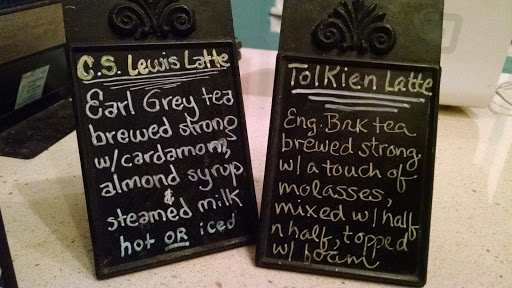 C.S. Lewis Latte
Earl Grey tea
brewed strong
w/cardamom,
almond syrup
&
steamed milk
hot OR iced
Tolkien Latte
Eng. Brk tea
brewed strong
w/ a touch of
molasses,
mixed w/ half
n half, topped
w/ foam